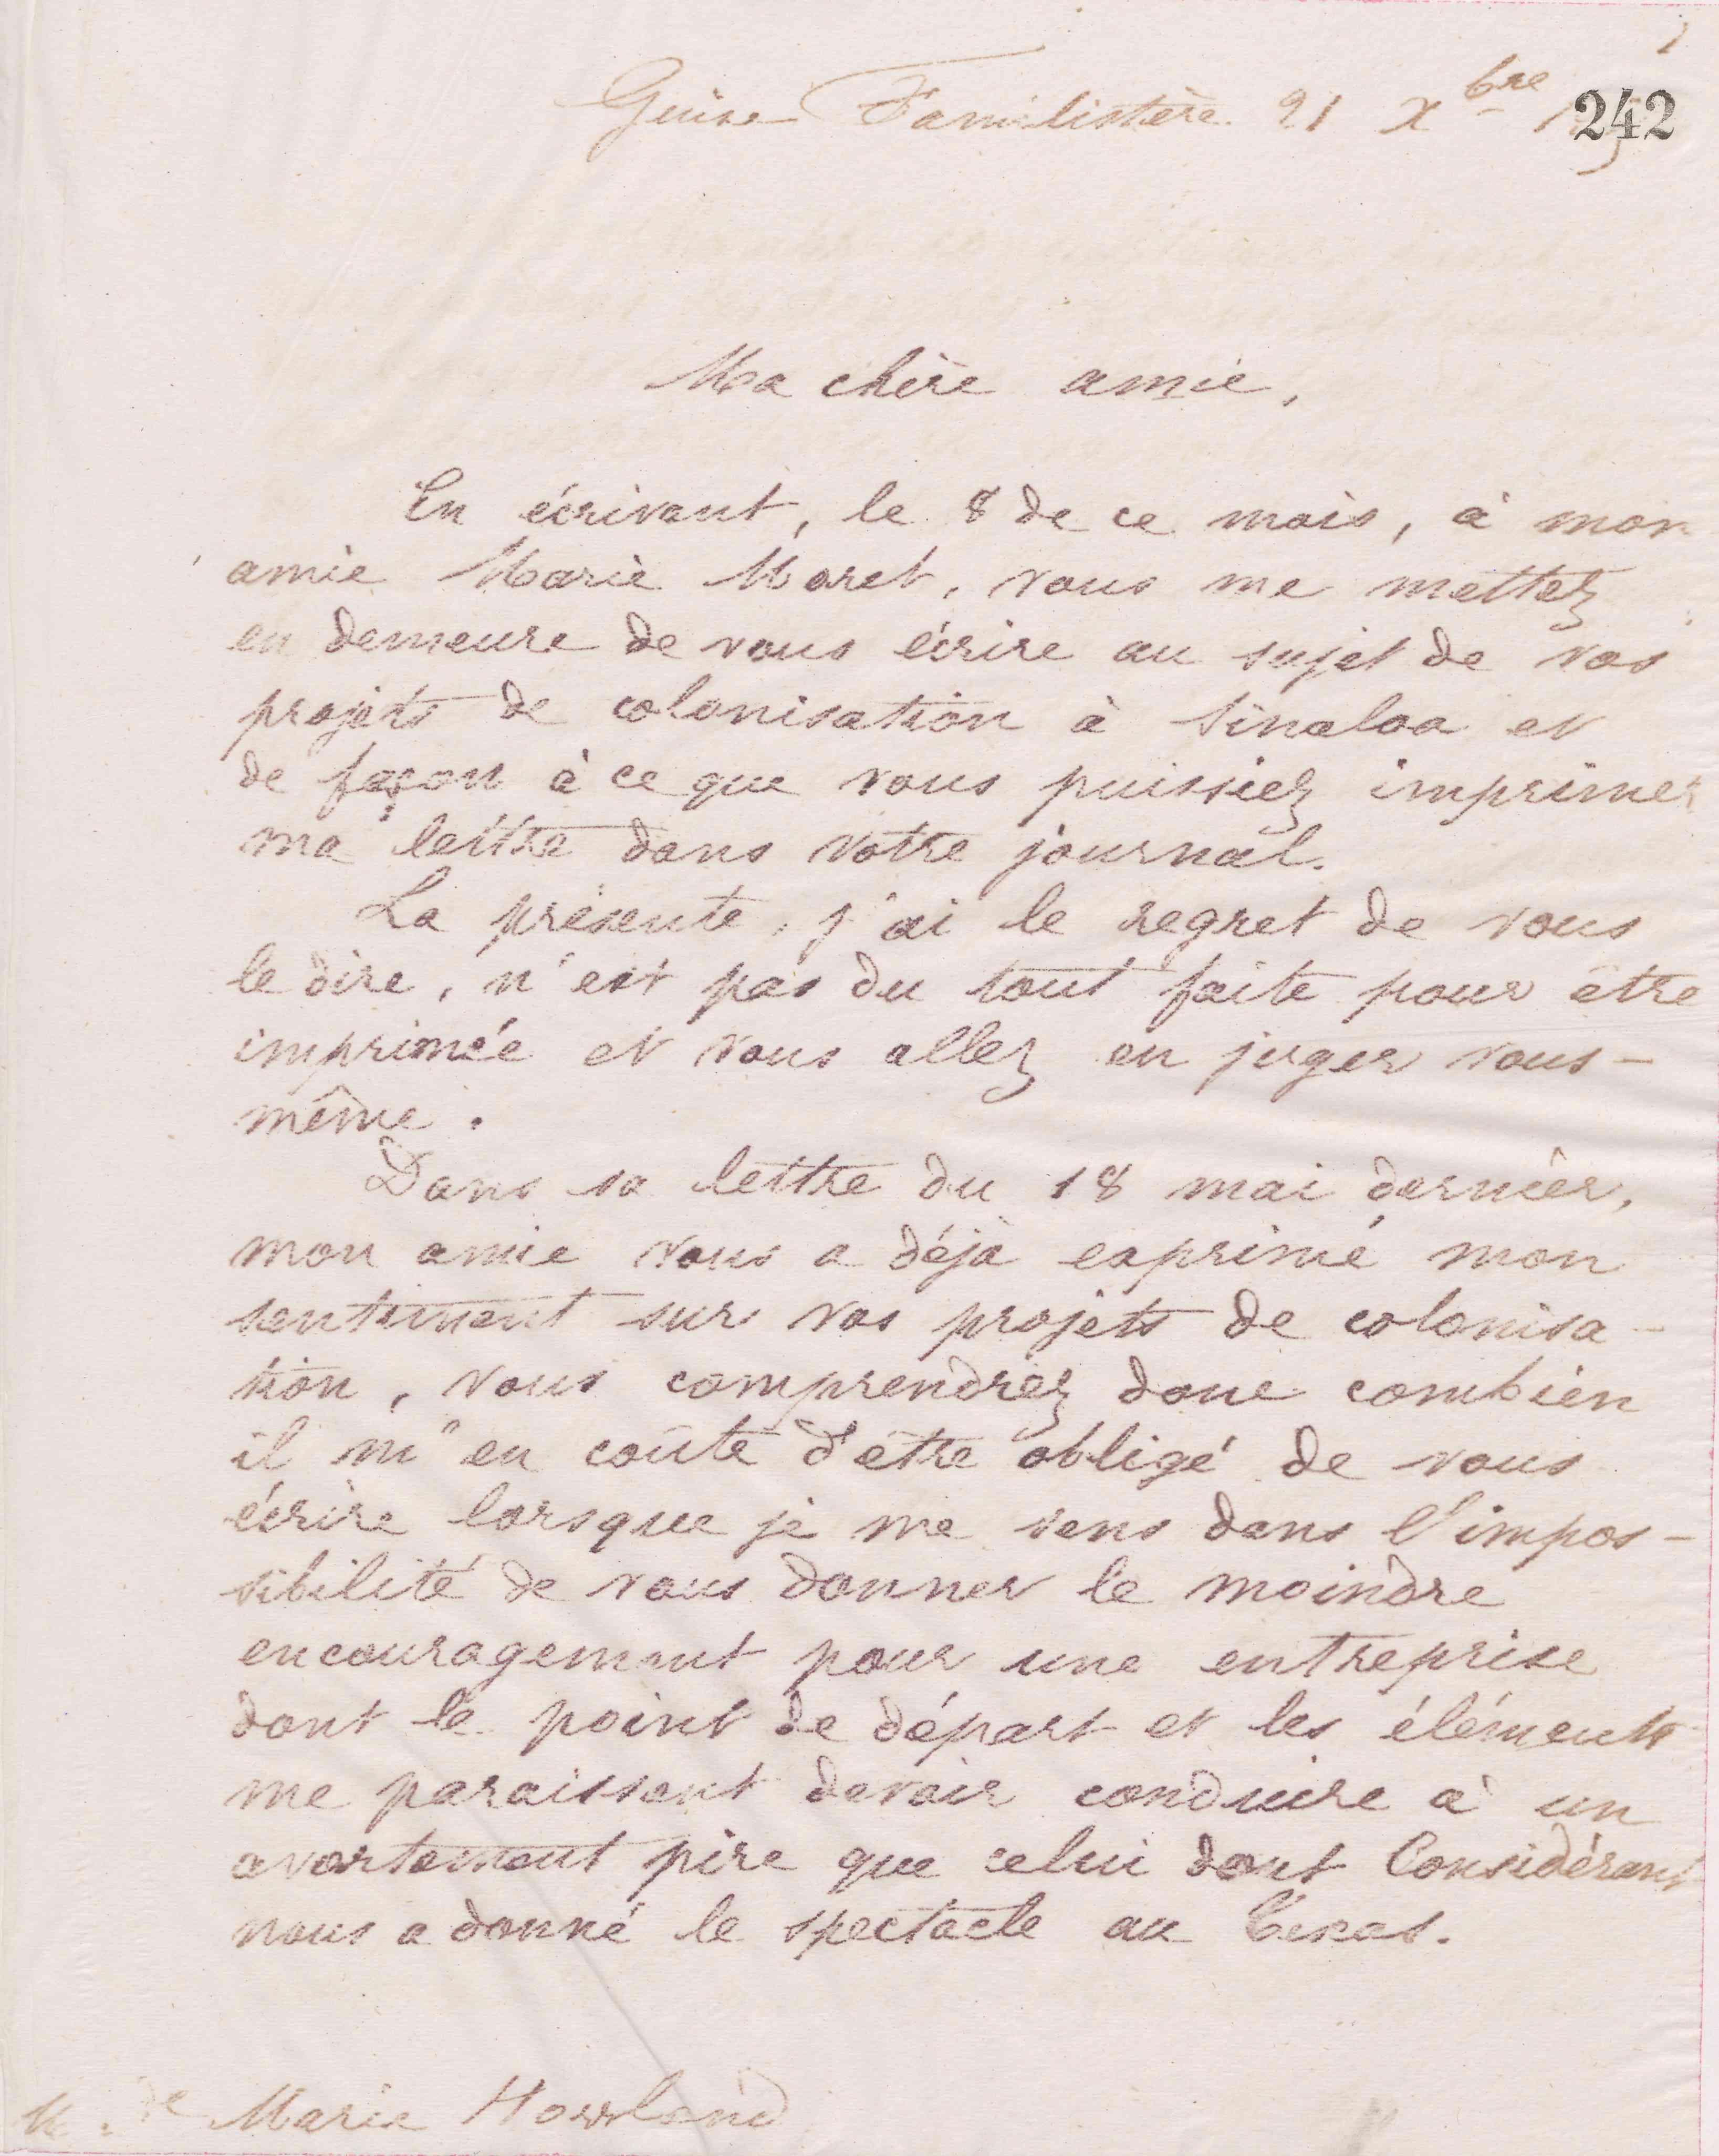 Guise Familistère 21 Xbre
242
Ma chère amie,
En écrivant, le 8 de ce mois, à mon
amie Marie Moret, vous me mettez
en demeure de vous écrire au sujet de vos
projets de colonisation à Sinaloa et
de façon à ce que vous puissiez imprimer
ma lettre dans votre journal.
La présente, j'ai le regret de vous
le dire, n'est pas du tout faite pour être
imprimée et vous allez en juger vous-
même.
Dans sa lettre du 18 mai dernier,
mon amie vous a déjà exprimé mon
sentiment sur vos projets de colonisa-
tion, vous comprendrez donc combien
il m'en coûte d'être obligé de vous
écrire lorsque je me sens dans l'impos-
sibilité de vous donner le moindre
encouragement pour une entreprise
dont le point de départ et les éléments
me paraissent devoir conduire à un
avortement pire que celui dont Considérant
nous a donné le spectacle au Texas.
Mde Marie Howland